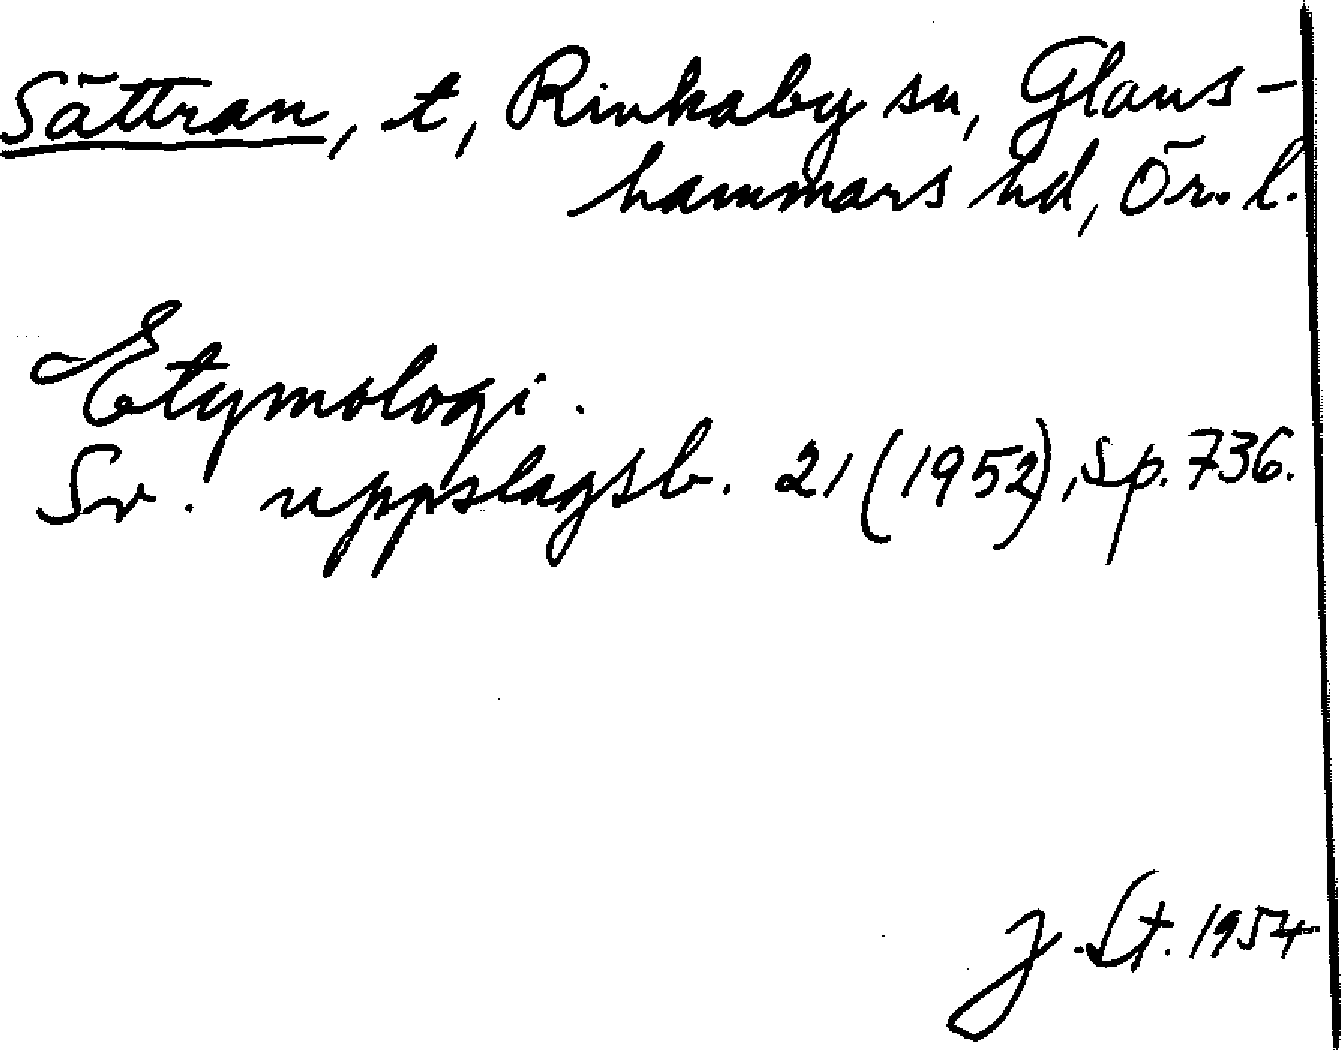 Sättran, t, Rinkaby sn, Glans-
hammars hd, Ör. l.
Etymologi.
Sv. uppslagsb. 21 (1952), sp. 736.
J. St. 1954